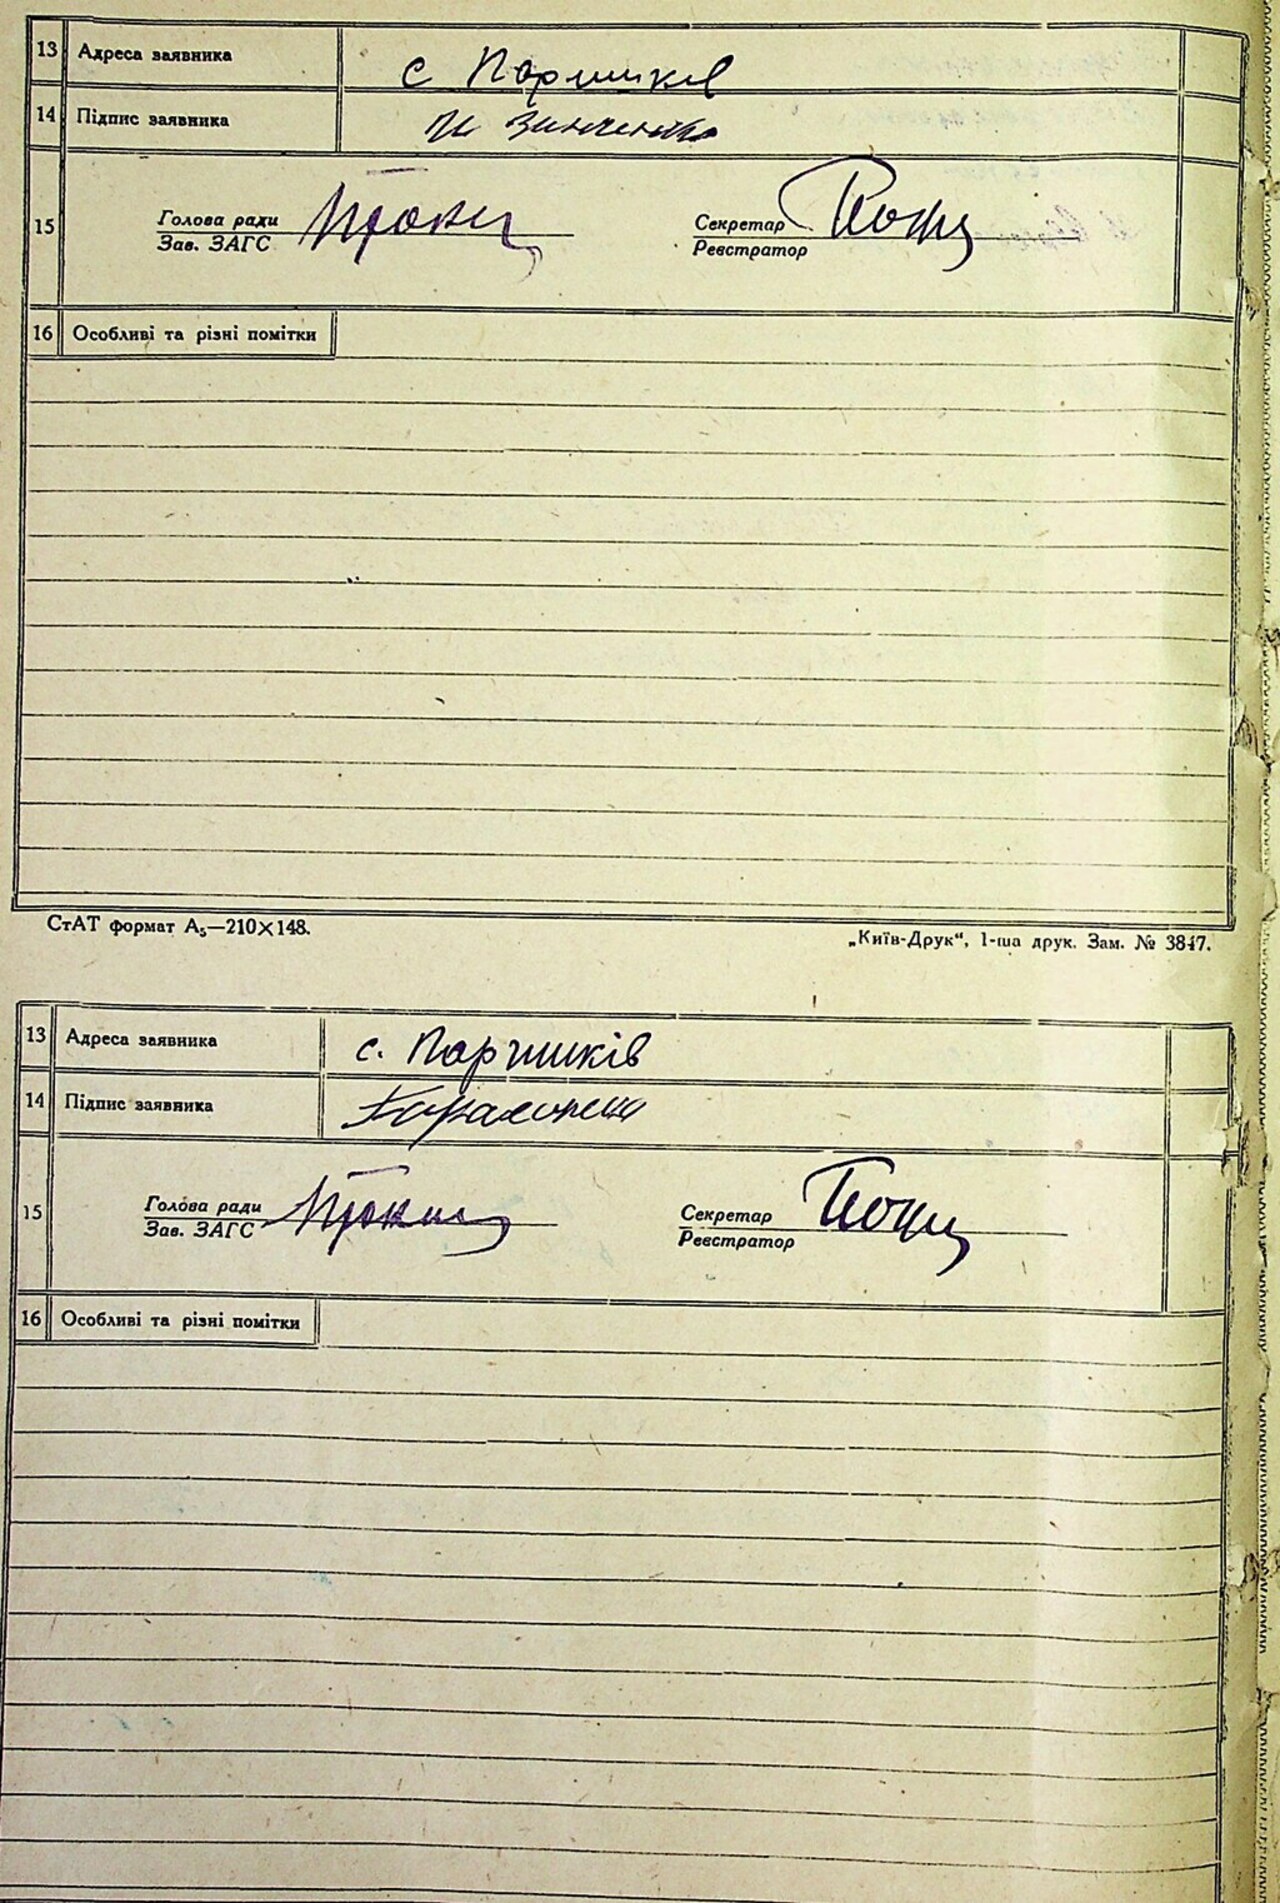 13 Адреса заявника с Паришків
14 Підпис заявника Зинченко
15 Голова ради
Зав. ЗАГС
Секретар
Реєстратор
16 Особливі та різні помітки
СтАТ формат А₅—210×148.
„Київ-Друк“, 1-ша друк. Зам. № 3847.
13 Адреса заявника с. Паришків
14 Підпис заявника
15 Голова ради
Зав. ЗАГС
Секретар
Реєстратор
16 Особливі та різні помітки